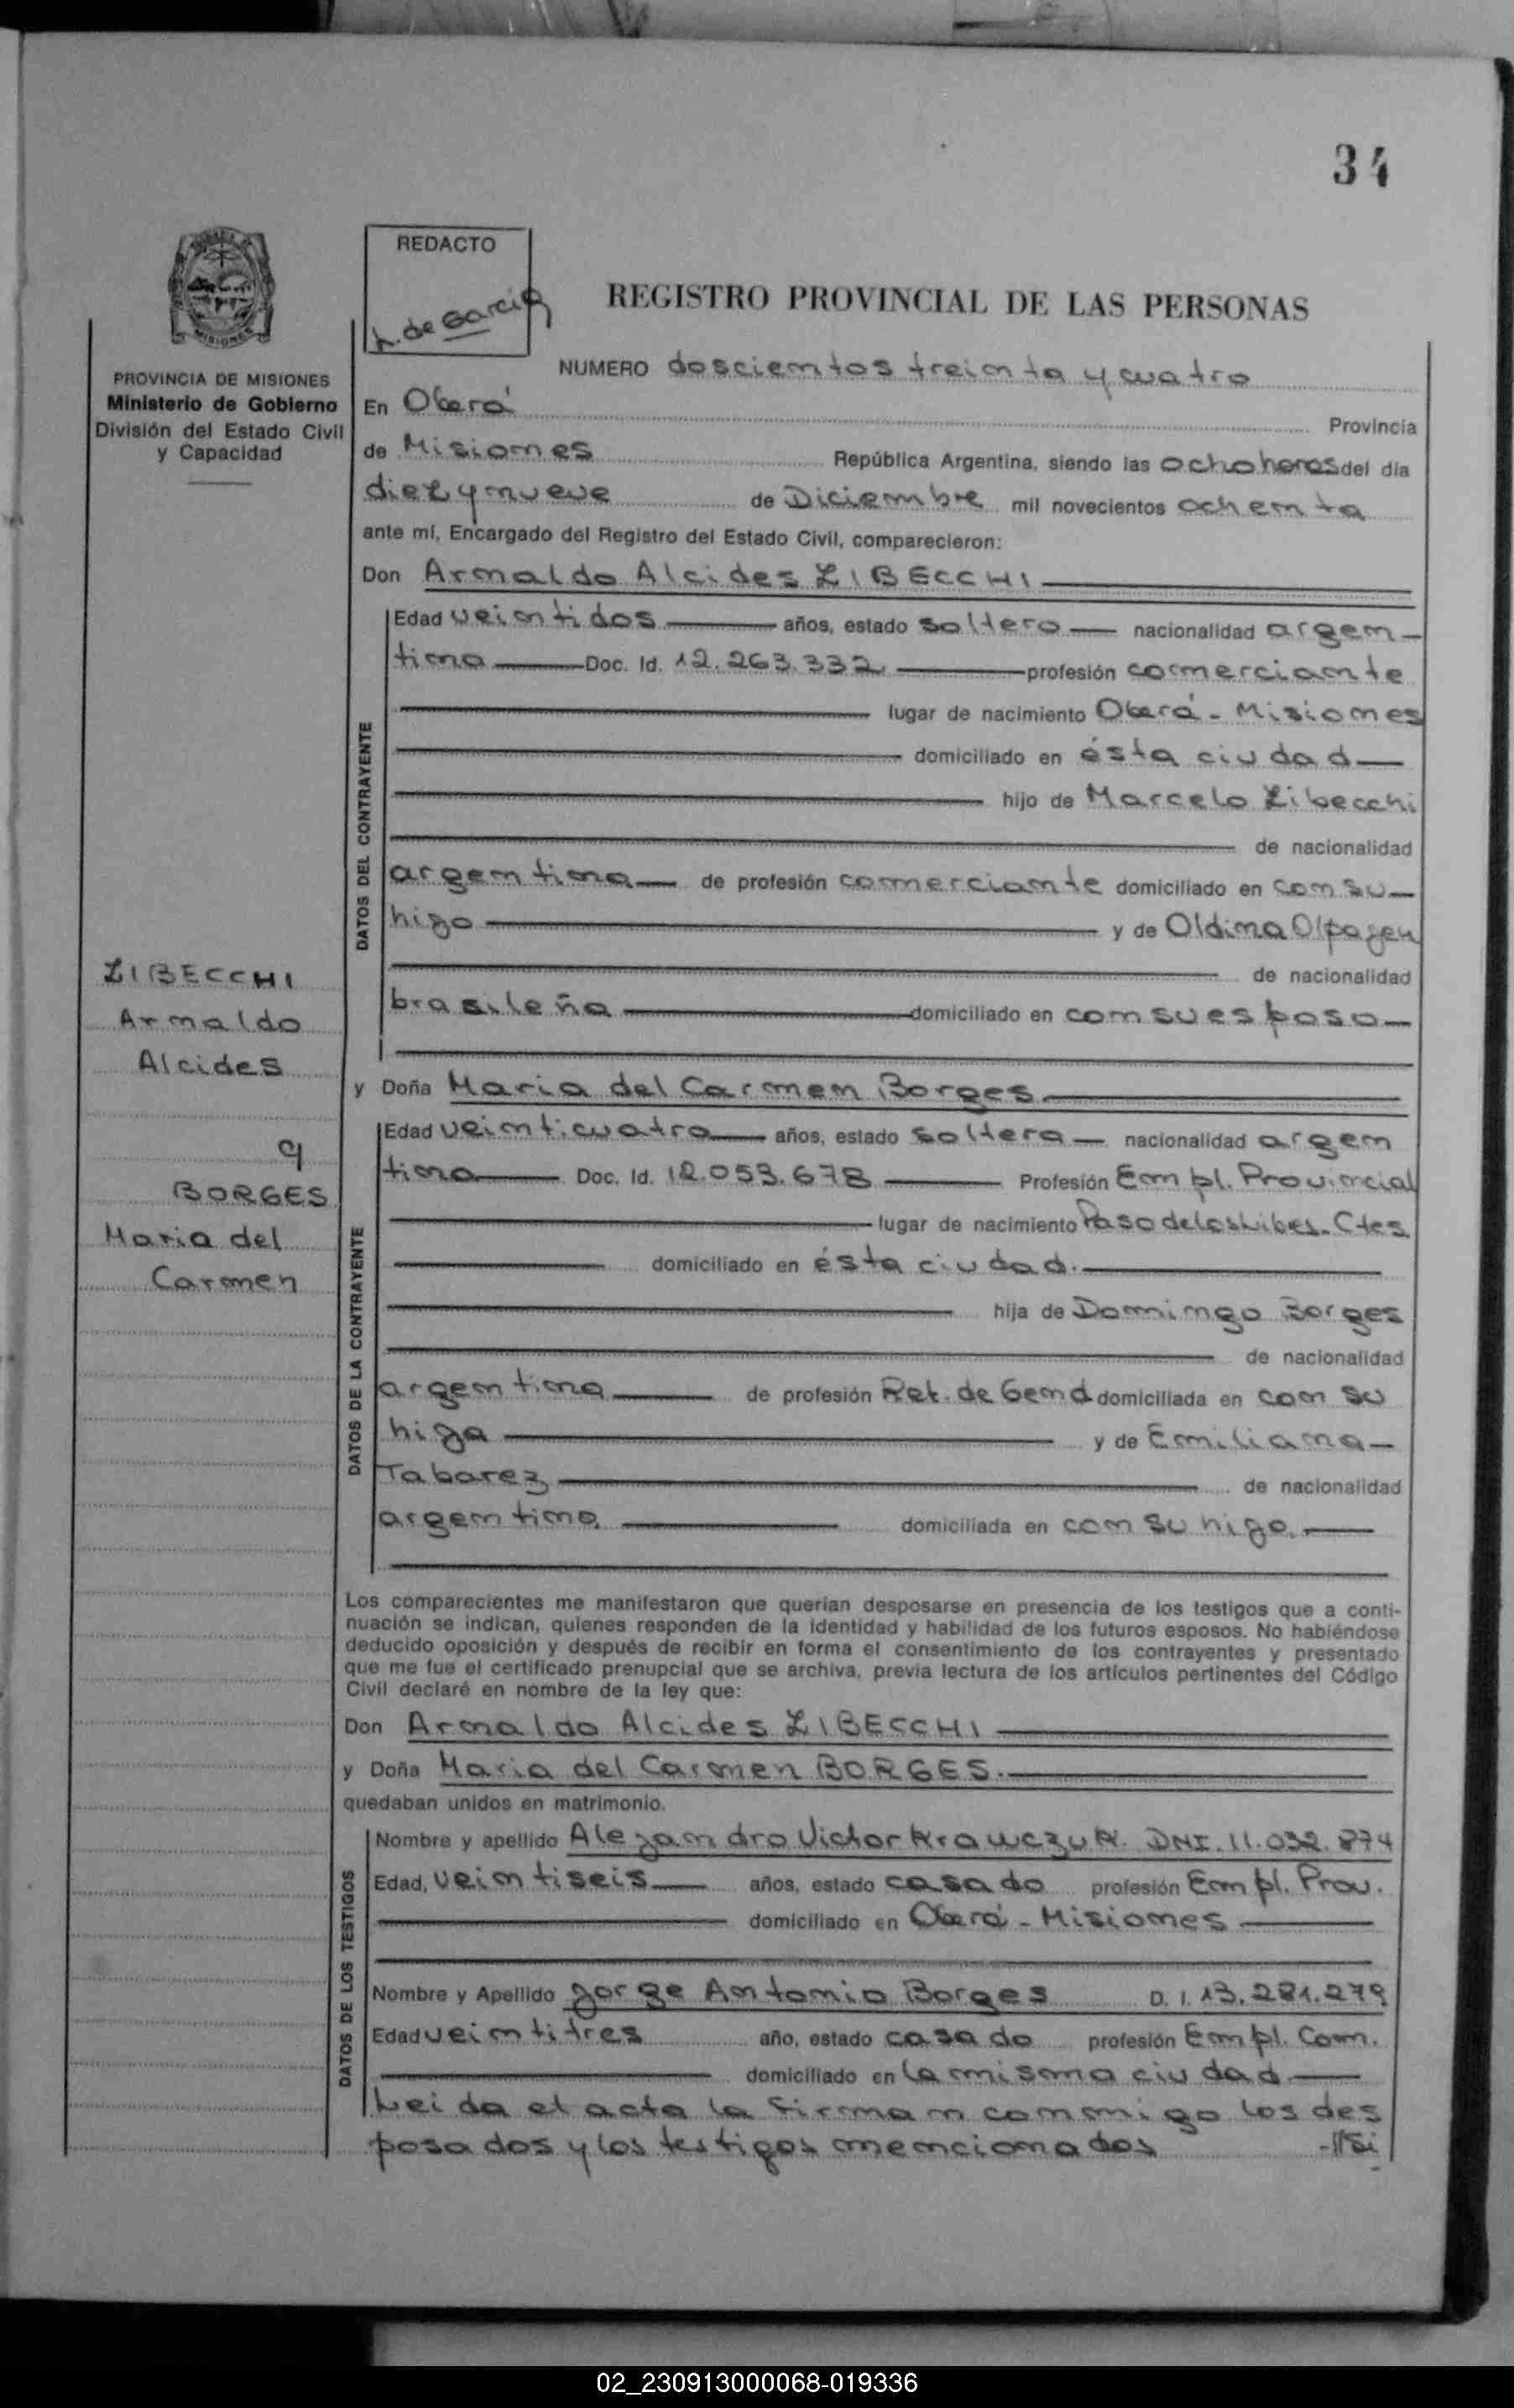 34
REDACTO
L. de Garcia
REGISTRO PROVINCIAL DE LAS PERSONAS
PROVINCIA DE MISIONES
Ministerio de Gobierno
División del Estado Civil
y Capacidad
NUMERO doscientos treinta y cuatro
En Oberá Provincia
de Misiones República Argentina, siendo las ocho horas del día
diez y nueve de Diciembre mil novecientos ochenta
ante mí, Encargado del Registro del Estado Civil, comparecieron:
Don Arnaldo Alcides LIBECCHI
DATOS DEL CONTRAYENTE
Edad veintidos años, estado soltero nacionalidad argen-
tina Doc. Id. 12.263.332. profesión comerciante
lugar de nacimiento Oberá - Misiones
domiciliado en ésta ciudad
hijo de Marcelo Libecchi
de nacionalidad
argentina de profesión comerciante domiciliado en con su
hijo y de Oldina Olpagen
de nacionalidad
brasileña domiciliado en con su esposo
LIBECCHI
Arnaldo
Alcides
y
BORGES
Maria del
Carmen
y Doña Maria del Carmen Borges
DATOS DE LA CONTRAYENTE
Edad veinticuatro años, estado soltera nacionalidad argen
tina Doc. Id. 12.053.678 Profesión Empl. Provincial
lugar de nacimiento Paso de los Libes. Ctes.
domiciliado en ésta ciudad.
hija de Domingo Borges
de nacionalidad
argentina de profesión Ret. de Gend domiciliada en con su
hija y de Emiliana
Tabarez de nacionalidad
argentina domiciliada en con su hija.
Los comparecientes me manifestaron que querían desposarse en presencia de los testigos que a conti-
nuación se indican, quienes responden de la identidad y habilidad de los futuros esposos. No habiéndose
deducido oposición y después de recibir en forma el consentimiento de los contrayentes y presentado
que me fue el certificado prenupcial que se archiva, previa lectura de los artículos pertinentes del Código
Civil declaré en nombre de la ley que:
Don Arnaldo Alcides LIBECCHI
y Doña Maria del Carmen BORGES.
quedaban unidos en matrimonio.
DATOS DE LOS TESTIGOS
Nombre y apellido Alejandro Victor Krawczuk. DNI. 11.032.874
Edad, veintiseis años, estado casado profesión Empl. Prov.
domiciliado en Oberá - Misiones
Nombre y Apellido Jorge Antonio Borges D. I. 13.281.279
Edad veintitres año, estado casado profesión Empl. Com.
domiciliado en la misma ciudad.
Leida el acta la firman conmigo los des
posados y los testigos mencionados
02_230913000068-019336